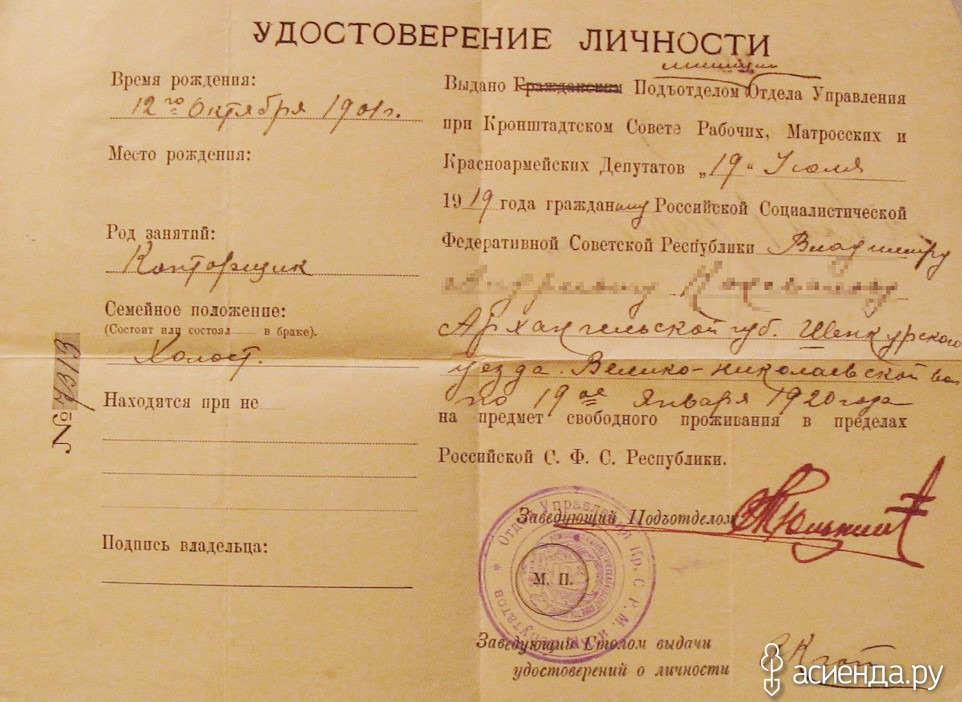 УДОСТОВЕРЕНИЕ ЛИЧНОСТИ
Время рождения:
12го Октября 1901г.
Место рождения:
Род занятий:
Конторщик
Семейное положение:
(Состоит или состоял в браке).
Холост.
Находятся при не
Подпись владельца:
№
милиции
Выдано Гражданским Подъотделом Отдела Управления
при Кронштадтском Совете Рабочих, Матросских и
Красноармейских Депутатов „19" Июля
1919 года гражданину Российской Социалистической
Федеративной Советской Республики Владимиру
Архангельской губ. Шенкурского
уезда. Велико-Николаевской вол
по 19ое Января 1920 года
на предмет свободного проживания в пределах
Российской С. Ф. С. Республики.
Заведующий Подъотделом
М. П.
Заведующий Столом выдачи
удостоверений о личности
Отдел Управления Кр. С. Р. М. и К. Депутатов
асиенда.ру